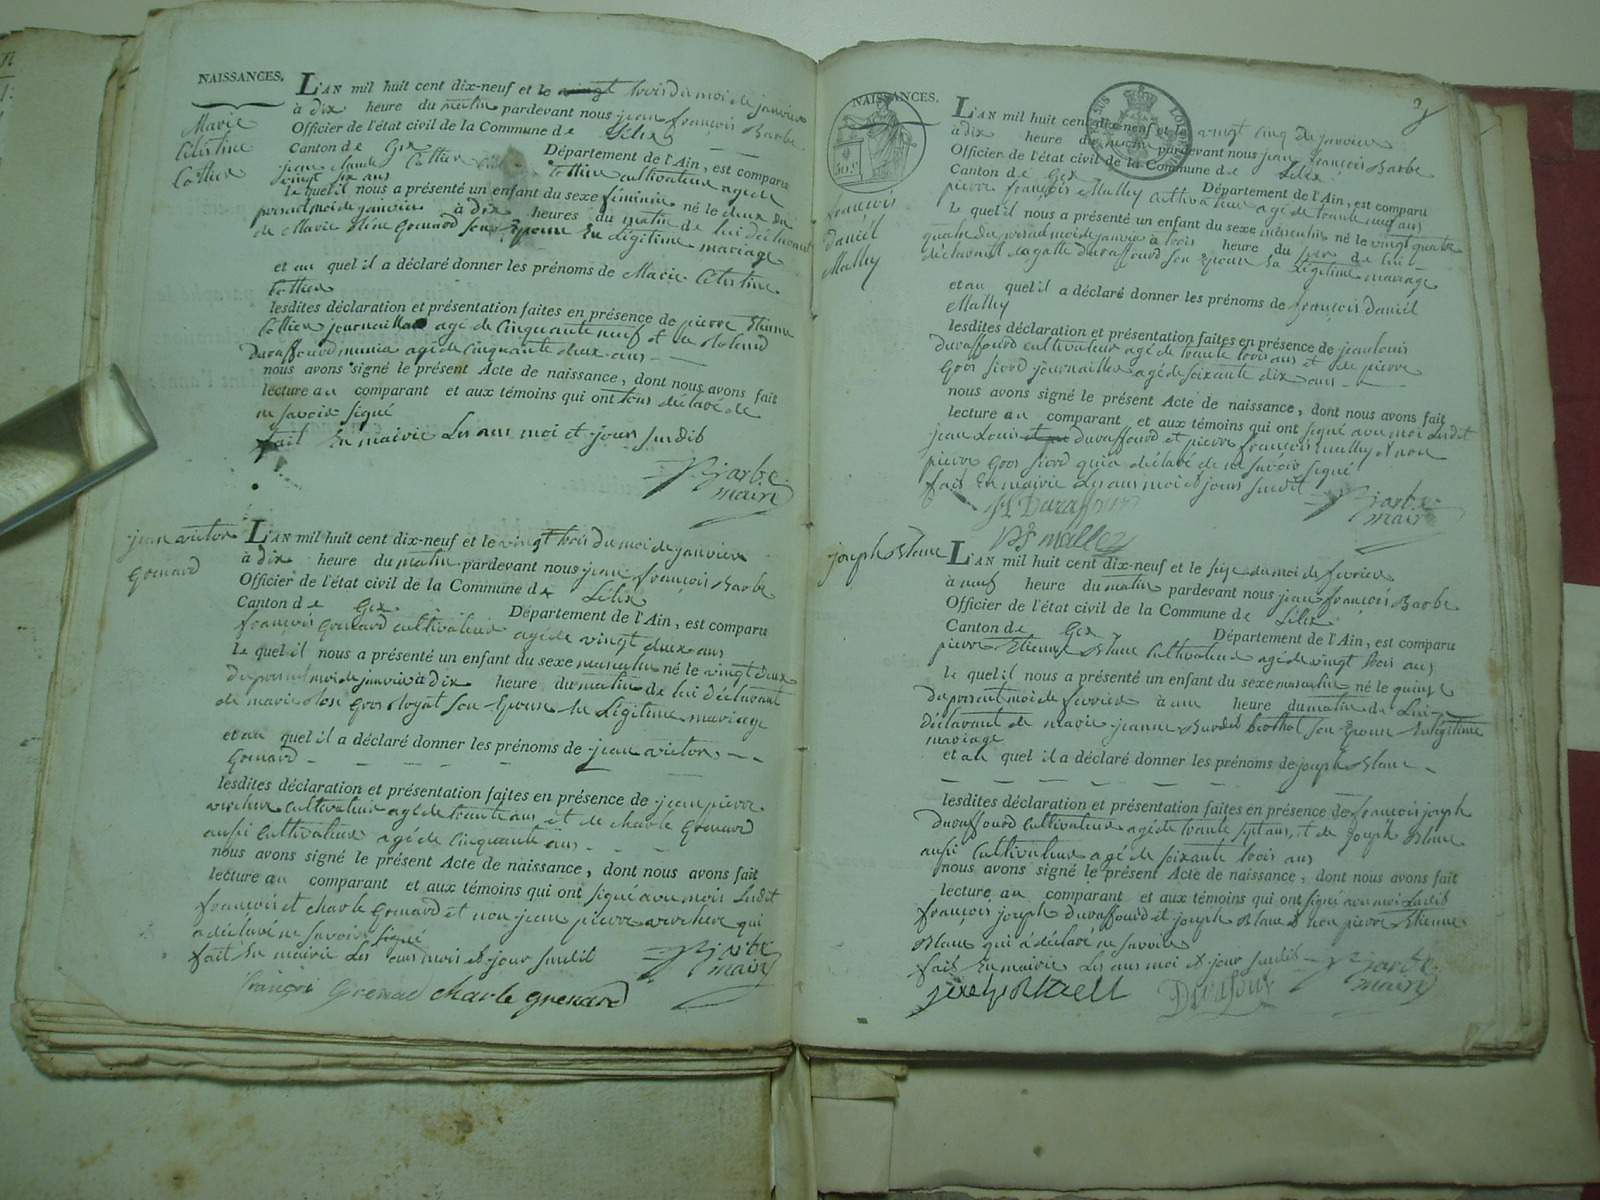 NAISSANCES.
Marie
Célestine
Cottier
L'AN mil huit cent dix-neuf et le vingt trois du moi de janvier
à dix heure du matin pardevant nous jean françois Barbe
Officier de l'état civil de la Commune de Lélex
Canton de Gex Département de l'Ain, est comparu
jean claude Cottier cultivateur agé de
vingt six ans
Le quel il nous a présenté un enfant du sexe féminin né le deux du
présent moi de janvier à dix heures du matin de lui déclarant
de Marie Grenard son Epouse En Légitime mariage
et au quel il a déclaré donner les prénoms de Marie Célestine
Cottier
lesdites déclaration et présentation faites en présence de pierre Etienne
Cottier journaillier agé de Cinquante neuf et de Roland
Duraffourd agé de Cinquante deux ans
nous avons signé le présent Acte de naissance, dont nous avons fait
lecture au comparant et aux témoins qui ont tous déclaré de
ne savoir signé
fait En mairie Les ans moi et jours susdits
Barbe
maire
jean victor
Grenard
L'AN mil huit cent dix-neuf et le vingt trois du moi de janvier
à dix heure du matin pardevant nous jean françois Barbe
Officier de l'état civil de la Commune de Lélex
Canton de Gex Département de l'Ain, est comparu
françois Grenard cultivateur agé de vingt deux ans
Le quel il nous a présenté un enfant du sexe masculin né le vingt deux
du présent moi de janvier à dix heure du matin de lui déclarant
de marie Rose Gros Royat son Epouse En Légitime mariage
et au quel il a déclaré donner les prénoms de jean victor
Grenard
lesdites déclaration et présentation faites en présence de jean pierre
cultivateur agé de trante ans et de charle Grenard
aussi Cultivateur agé de Cinquante ans
nous avons signé le présent Acte de naissance, dont nous avons fait
lecture au comparant et aux témoins qui ont signé avec moi Susdit
françois et charle Grenard et non jean pierre qui
a déclaré ne savoir signé
fait En mairie Les ans mois et jour susdit
Barbe
maire
françois Grenard charle grenard
NAISSANCES.
françois
Daniél
Mathy
L'AN mil huit cent dix-neuf et le vingt cinq de janvier
à dix heure du matin pardevant nous jean françois Barbe
Officier de l'état civil de la Commune de Lélex
Canton de Gex Département de l'Ain, est comparu
pierre françois Mathy Cultivateur agé de trante neuf ans
Le quel il nous a présenté un enfant du sexe masculin né le vingt quatre
du présent moi de janvier à trois heure du soir de lui
déclarant Duraffourd son Epouse En Légitime mariage
et au quel il a déclaré donner les prénoms de françois Daniél
Mathy
lesdites déclaration et présentation faites en présence de jean louis
Duraffourd cultivateur agé de trante trois ans et de pierre
Gros journaillier agé de soixante dix ans
nous avons signé le présent Acte de naissance, dont nous avons fait
lecture au comparant et aux témoins qui ont signé avec moi Susdit
jean Louis Duraffourd et pierre françois Mathy et non
pierre Gros qui a déclaré de ne savoir signé
fait En mairie Les ans moi et jours susdit
Barbe
maire
joseph Blanc
L'AN mil huit cent dix-neuf et le seize du moi de fevrier
à neuf heure du matin pardevant nous jean françois Barbe
Officier de l'état civil de la Commune de Lélex
Canton de Gex Département de l'Ain, est comparu
pierre Etienne Blanc Cultivateur agé de vingt trois ans
Le quel il nous a présenté un enfant du sexe masculin né le quinze
du présent moi de fevrier à une heure du matin de Lui
déclarant de marie jeanne Burdet son Epouse En légitime
mariage
et au quel il a déclaré donner les prénoms de joseph Blanc
lesdites déclaration et présentation faites en présence de françois joseph
Duraffourd Cultivateur agé de trante sept ans, et de joseph Blanc
aussi Cultivateur agé de soixante trois ans
nous avons signé le présent Acte de naissance, dont nous avons fait
lecture au comparant et aux témoins qui ont signé avec moi Susdit
françois joseph Duraffourd et joseph Blanc & non pierre Etienne
Blanc qui a déclaré ne savoir
fait En mairie Les ans moi & jour susdit
Barbe
maire